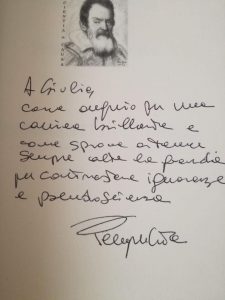 SCIENTIA CURA
A Giulia,
come augurio per una
carriera brillante e
come sprone a tenere
sempre alta la guardia
per contrastare ignoranza
e pseudoscienza